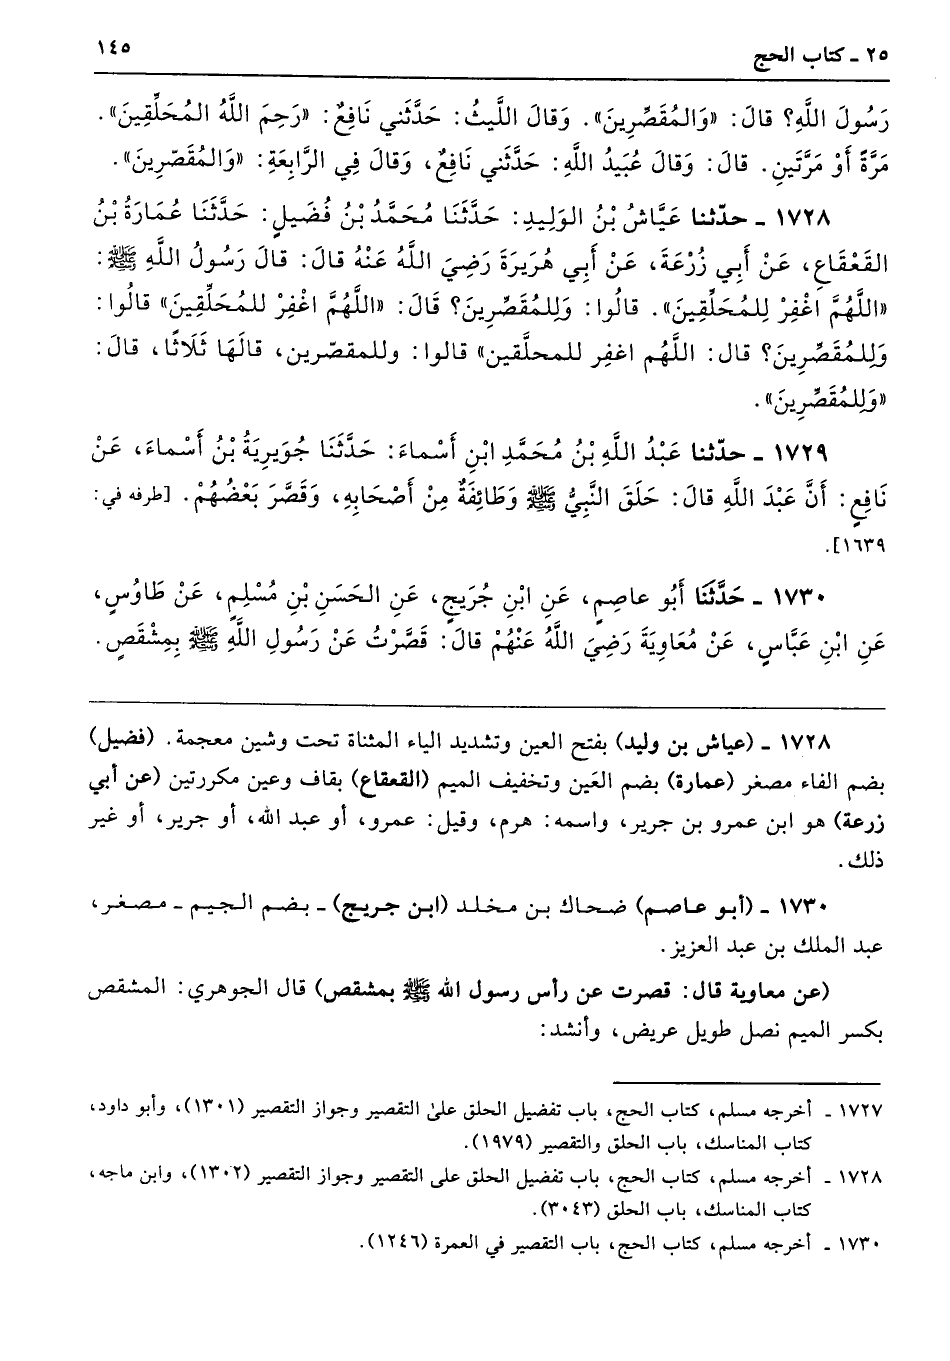 ٢٥ ـ كتاب الحج
١٤٥
رَسُولَ اللَّهِ؟ قالَ: «وَالمُقَصِّرِينَ». وَقالَ اللَّيثُ: حَدَّثَني نَافِعٌ: «رَحِمَ اللَّهُ المُحَلِّقِينَ».
مَرَّةً أَوْ مَرَّتَينِ. قالَ: وَقالَ عُبَيدُ اللَّهِ: حَدَّثَني نَافِعٌ، وَقالَ فِي الرَّابِعَةِ: «وَالمُقَصّرِينَ».
١٧٢٨ ـ حدّثنا عَيَّاشُ بْنُ الوَلِيدِ: حَدَّثَنَا مُحَمَّدُ بْنُ فُضَيلٍ: حَدَّثَنَا عُمَارَةُ بْنُ
القَعْقَاعِ، عَنْ أَبِي زُرْعَةَ، عَنْ أَبِي هُرَيرَةَ رَضِيَ اللَّهُ عَنْهُ قالَ: قالَ رَسُولُ اللَّهِ ﷺ:
«اللَّهُمَّ اغْفِرْ لِلمُحَلِّقِينَ». قالُوا: وَلِلمُقَصِّرِينَ؟ قَالَ: «اللَّهُمَّ اغْفِرْ للمُحَلِّقِينَ» قالُوا:
وَلِلمُقَصِّرِينَ؟ قال: اللَّهُم اغفِر للمحلَّقين» قالوا: وللمقصّرين، قالَهَا ثَلَاثًا، قالَ:
«وَلِلمُقَصِّرِينَ».
١٧٢٩ ـ حدّثنا عَبْدُ اللَّهِ بْنُ مُحَمَّدِ ابْنِ أَسْماءَ: حَدَّثَنَا جُوَيرِيَةُ بْنُ أَسْماءَ، عَنْ
نَافِعٍ: أَنَّ عَبْدَ اللَّهِ قالَ: حَلَقَ النَّبِيُّ ﷺ وَطَائِفَةٌ مِنْ أَصْحَابِهِ، وَقَصَّرَ بَعْضُهُمْ. [طرفه في:
١٦٣٩].
١٧٣٠ ـ حَدَّثَنَا أَبُو عاصِمٍ، عَنِ ابْنِ جُرَيجٍ، عَنِ الحَسَنِ بْنِ مُسْلِمٍ، عَنْ طَاوُسٍ،
عَنِ ابْنِ عَبَّاسٍ، عَنْ مُعَاوِيَةَ رَضِيَ اللَّهُ عَنْهُمْ قالَ: قَصَّرْتُ عَنْ رَسُولِ اللَّهِ ﷺ بِمِشْقَصٍ.
١٧٢٨ ـ (عياش بن وليد) بفتح العين وتشديد الياء المثناة تحت وشين معجمة. (فضيل)
بضم الفاء مصغر (عمارة) بضم العَين وتخفيف الميم (القعقاع) بقاف وعين مكررتين (عن أبي
زرعة) هو ابن عمرو بن جرير، واسمه: هرم، وقيل: عمرو، أو عبد الله، أو جرير، أو غير
ذلك.
١٧٣٠ ـ (أبو عاصم) ضحاك بن مخلد (ابن جريج) ـ بضم الجيم ـ مصغر،
عبد الملك بن عبد العزيز.
(عن معاوية قال: قصرت عن رأس رسول الله ﷺ بمشقص) قال الجوهري: المشقص
بكسر الميم نصل طويل عريض، وأنشد:
١٧٢٧ ـ أخرجه مسلم، كتاب الحج، باب تفضيل الحلق على التقصير وجواز التقصير (١٣٠١)، وأبو داود،
كتاب المناسك، باب الحلق والتقصير (١٩٧٩).
١٧٢٨ ـ أخرجه مسلم، كتاب الحج، باب تفضيل الحلق على التقصير وجواز التقصير (١٣٠٢)، وابن ماجه،
كتاب المناسك، باب الحلق (٣٠٤٣).
١٧٣٠ ـ أخرجه مسلم، كتاب الحج، باب التقصير في العمرة (١٢٤٦).